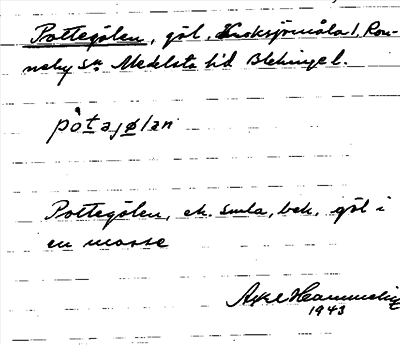 Pottegölen, göl, Kroksjömåla 1, Ron-
neby sn Medelsta hd Blekinge l.
påtajølan
Pottegölen, ek. smla, bek. göl i
en mosse
Åke Hammelin
1943